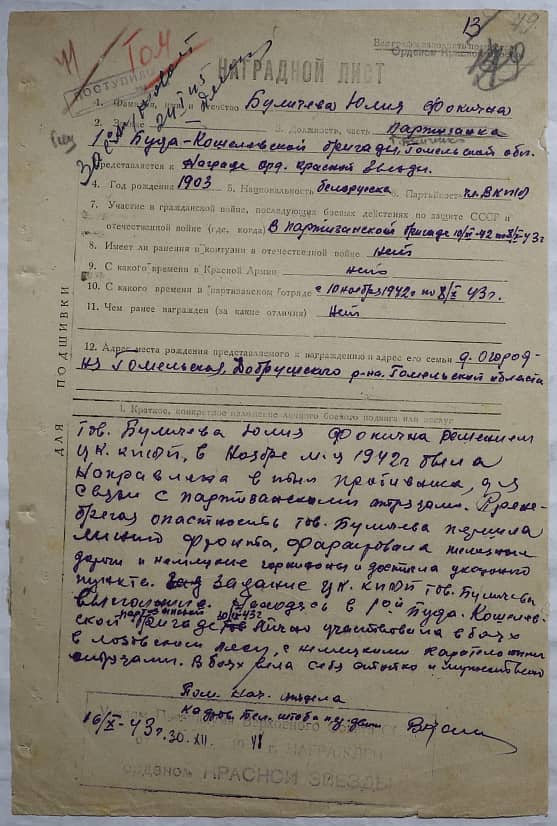 13
49
41
Гом
ПОСТУПИЛ
НАГРАДНОЙ ЛИСТ
1. Фамилия, имя и отчество Буличева Юлия Фокична
2. Звание 3. Должность, часть Партизанка
Буда-Кошелевской бригады, Гомельской обл.
Представляется к Награде орд. Красной Звезды.
4. Год рождения 1903 5. Национальность белорусска 6. Партийность чл. ВКП(б)
7. Участие в гражданской войне, последующих боевых действиях по защите СССР и
отечественной войне (где, когда) В партизанской бригаде 10/XI-42 по 8/X-43 г
8. Имеет ли ранения и контузии в отечественной войне нет
9. С какого времени в Красной Армии нет
10. С какого времени в партизанском отряде с 10 ноября 1942 г по 8/X 43 г.
11. Чем ранее награжден (за какие отличия) Нет
12. Адрес места рождения представляемого к награждению и адрес его семьи д. Огород-
ня Гомельская, Добрушского р-на. Гомельской области
ДЛЯ ПОДШИВКИ
1. Краткое, конкретное изложение личного боевого подвига или заслуг
Тов. Буличева Юлия Фокична решением
ЦК. КП(б)Б, в Ноябре м-ц 1942г была
Направлена в тыл противника, для
Связи с партизанскими отрядами. Прене-
брегая опасностью тов. Буличева перешла
линию фронта, немецкие
дороги и немецкие гарнизоны и достигла указанного
пункта. Задание ЦК. КП(б)Б тов. Буличева
выполнила. Находясь в Буда-Кошелев-
ской партизанской бригаде лично участвовала в боях
в лесу, с немецкими карательными
отрядами. В боях вела себя стойко и мужественно
Пом. Нач. отдела
Кадров Бел. штаба п/движ.
16/X-43 г.
30. XII. 48 г. НАГРАЖДЕН
орденом КРАСНОЙ ЗВЕЗДЫ